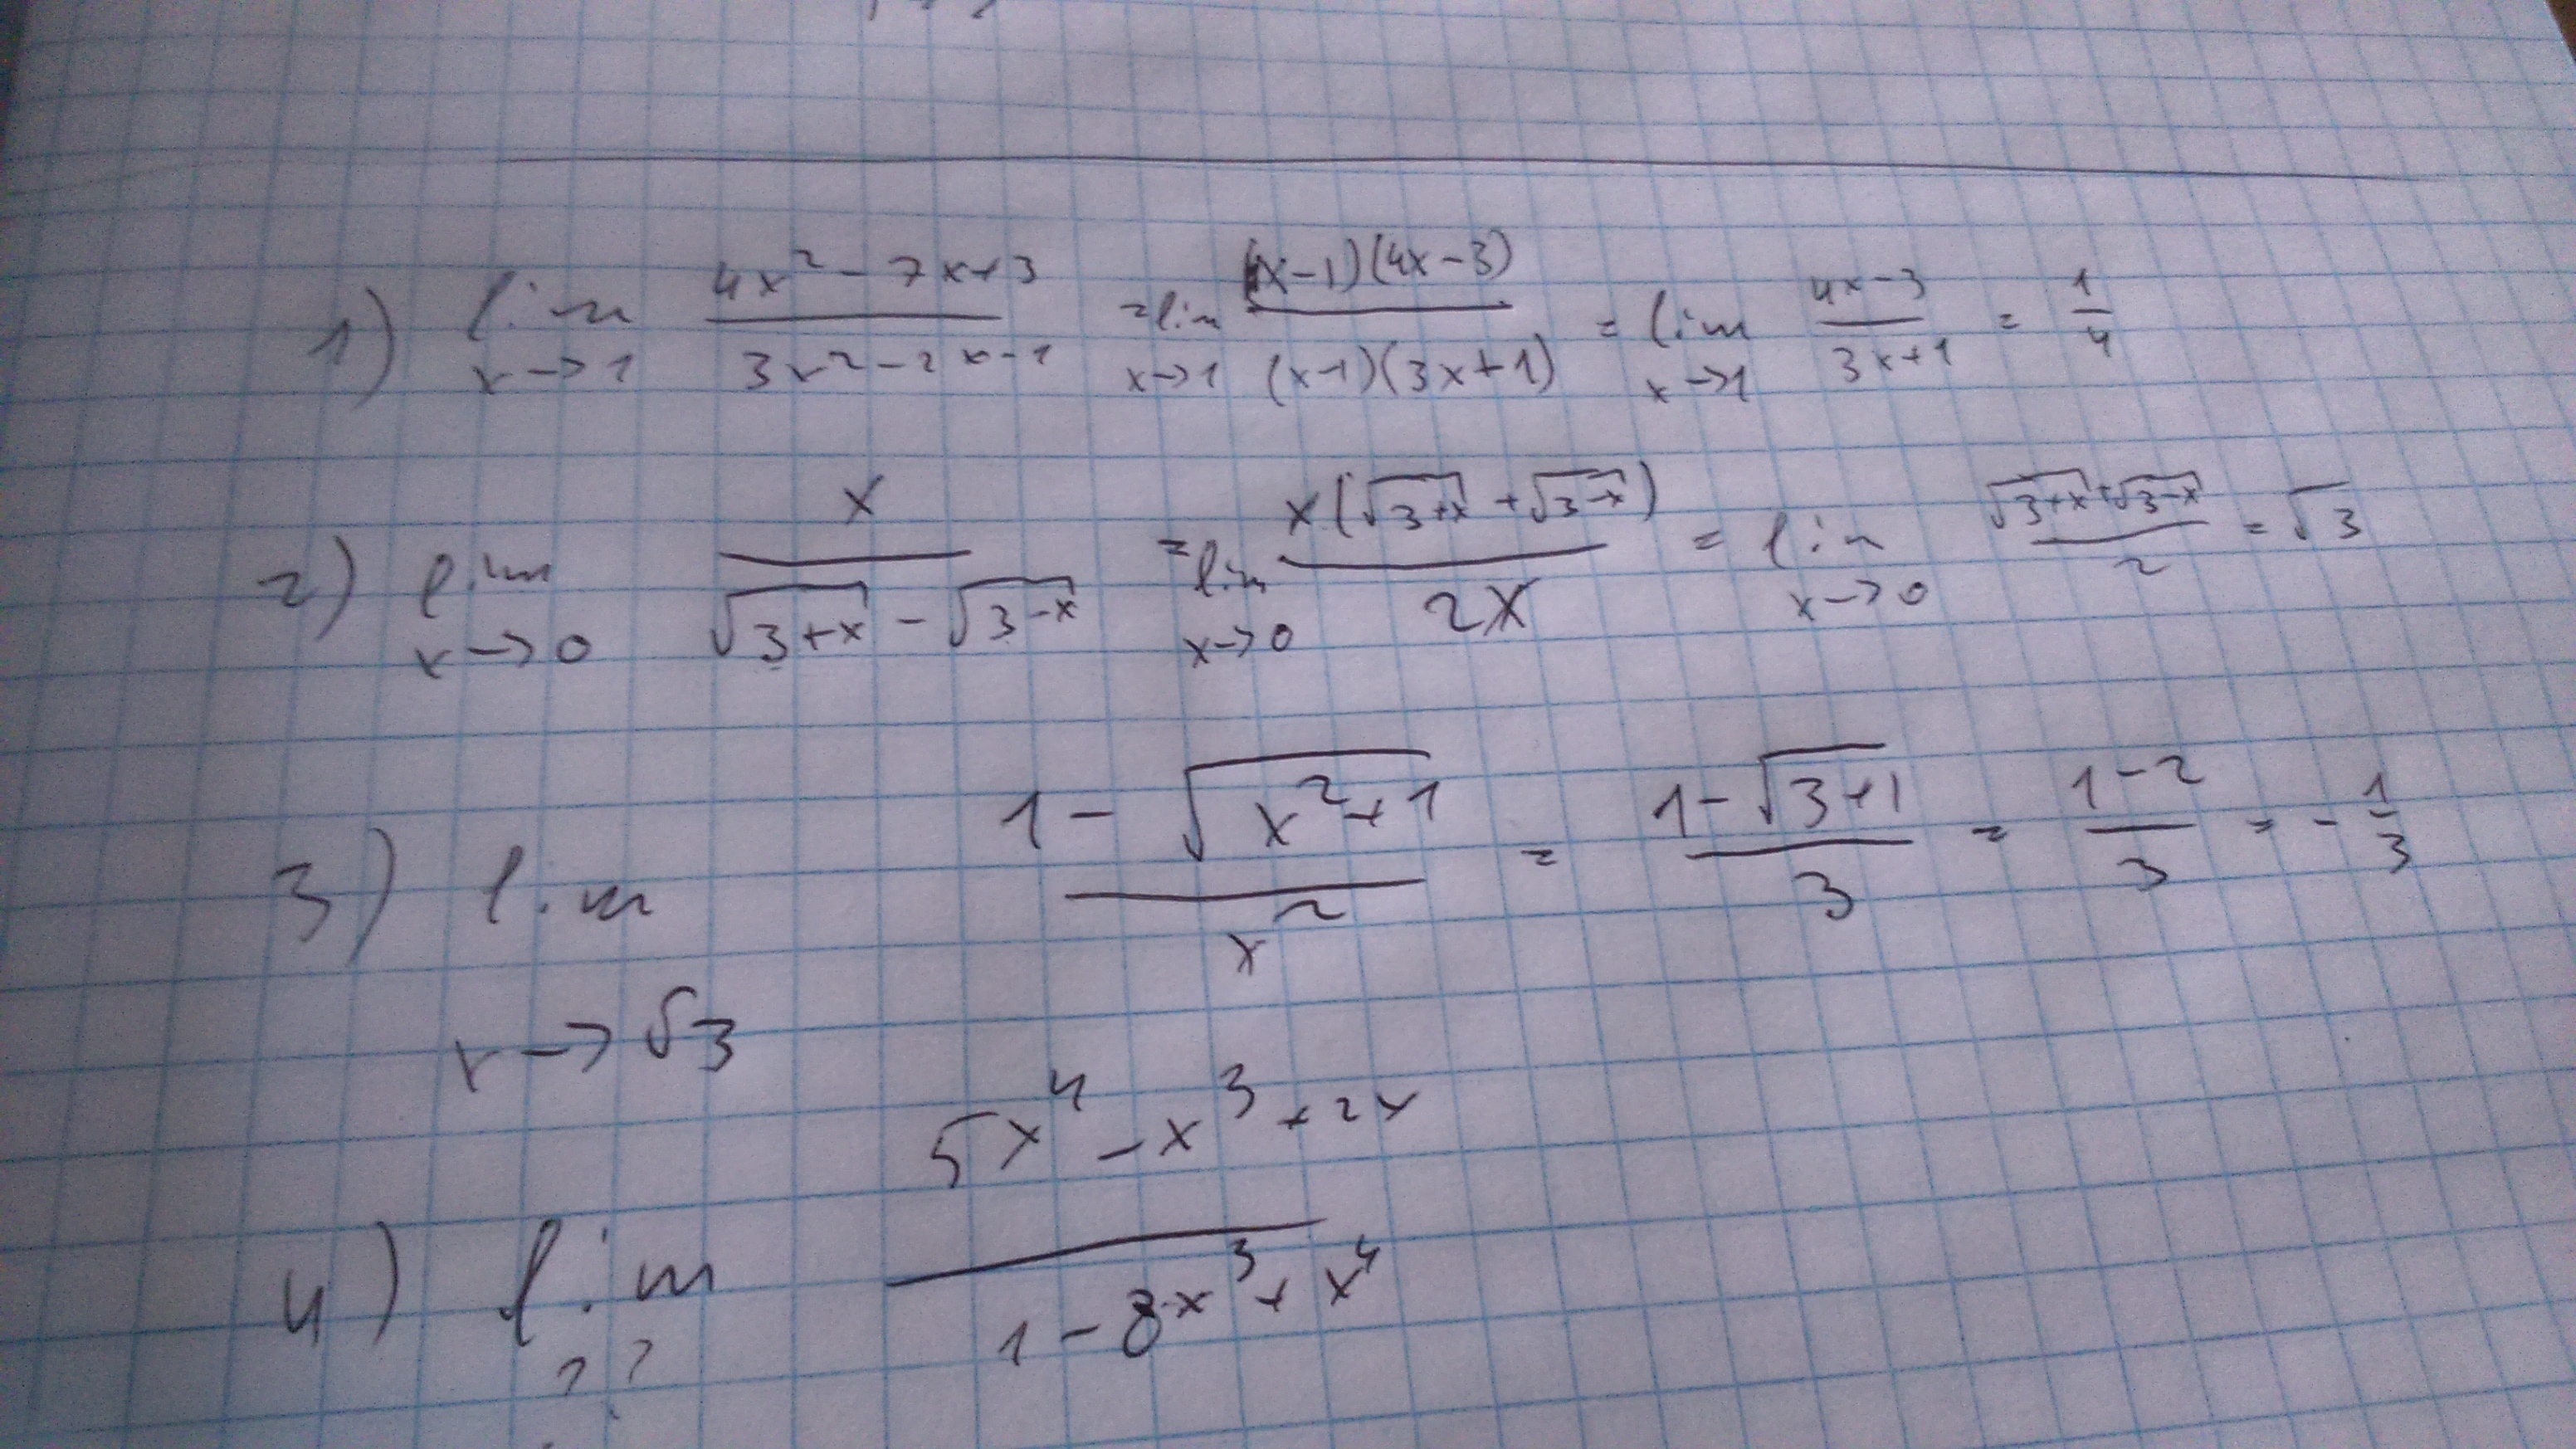 1) lim x→1 (4x² - 7x + 3)/(3x² - 2x - 1) = lim x→1 ((x-1)(4x-3))/((x-1)(3x+1)) = lim x→1 (4x-3)/(3x+1) = 1/4
2) lim x→0 x/(√(3+x) - √(3-x)) = lim x→0 (x(√(3+x) + √(3-x)))/(2x) = lim x→0 (√(3+x) + √(3-x))/2 = √3
3) lim x→√3 (1 - √(x²+1))/x² = (1 - √(3+1))/3 = (1-2)/3 = -1/3
4) lim ?? (5x⁴ - x³ + 2x)/(1 - 8x³ + x⁴)